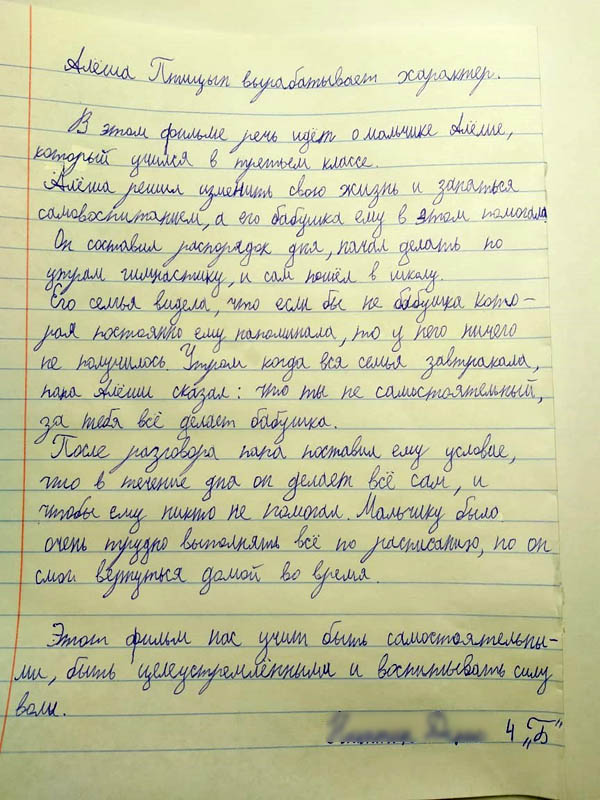 Алёша Птицын вырабатывает характер.
В этом фильме речь идёт о мальчике Алёше,
который учился в третьем классе.
Алёша решил изменить свою жизнь и заняться
самовоспитанием, а его бабушка ему в этом помогала
Он составил распорядок дня, начал делать по
утрам гимнастику, и сам пошёл в школу.
Его семья видела, что если бы не бабушка кото-
рая постоянно ему напоминала, то у него ничего
не получилось. Утром когда вся семья завтракала,
папа Алёши сказал: что ты не самостоятельный,
за тебя всё делает бабушка.
После разговора папа поставил ему условие,
что в течение дня он делает всё сам, и
чтобы ему никто не помогал. Мальчику было
очень трудно выполнять всё по расписанию, но он
смог вернуться домой во время.
Этот фильм нас учит быть самостоятельны-
ми, быть целеустремлёнными и воспитывать силу
воли.
4 „Б"